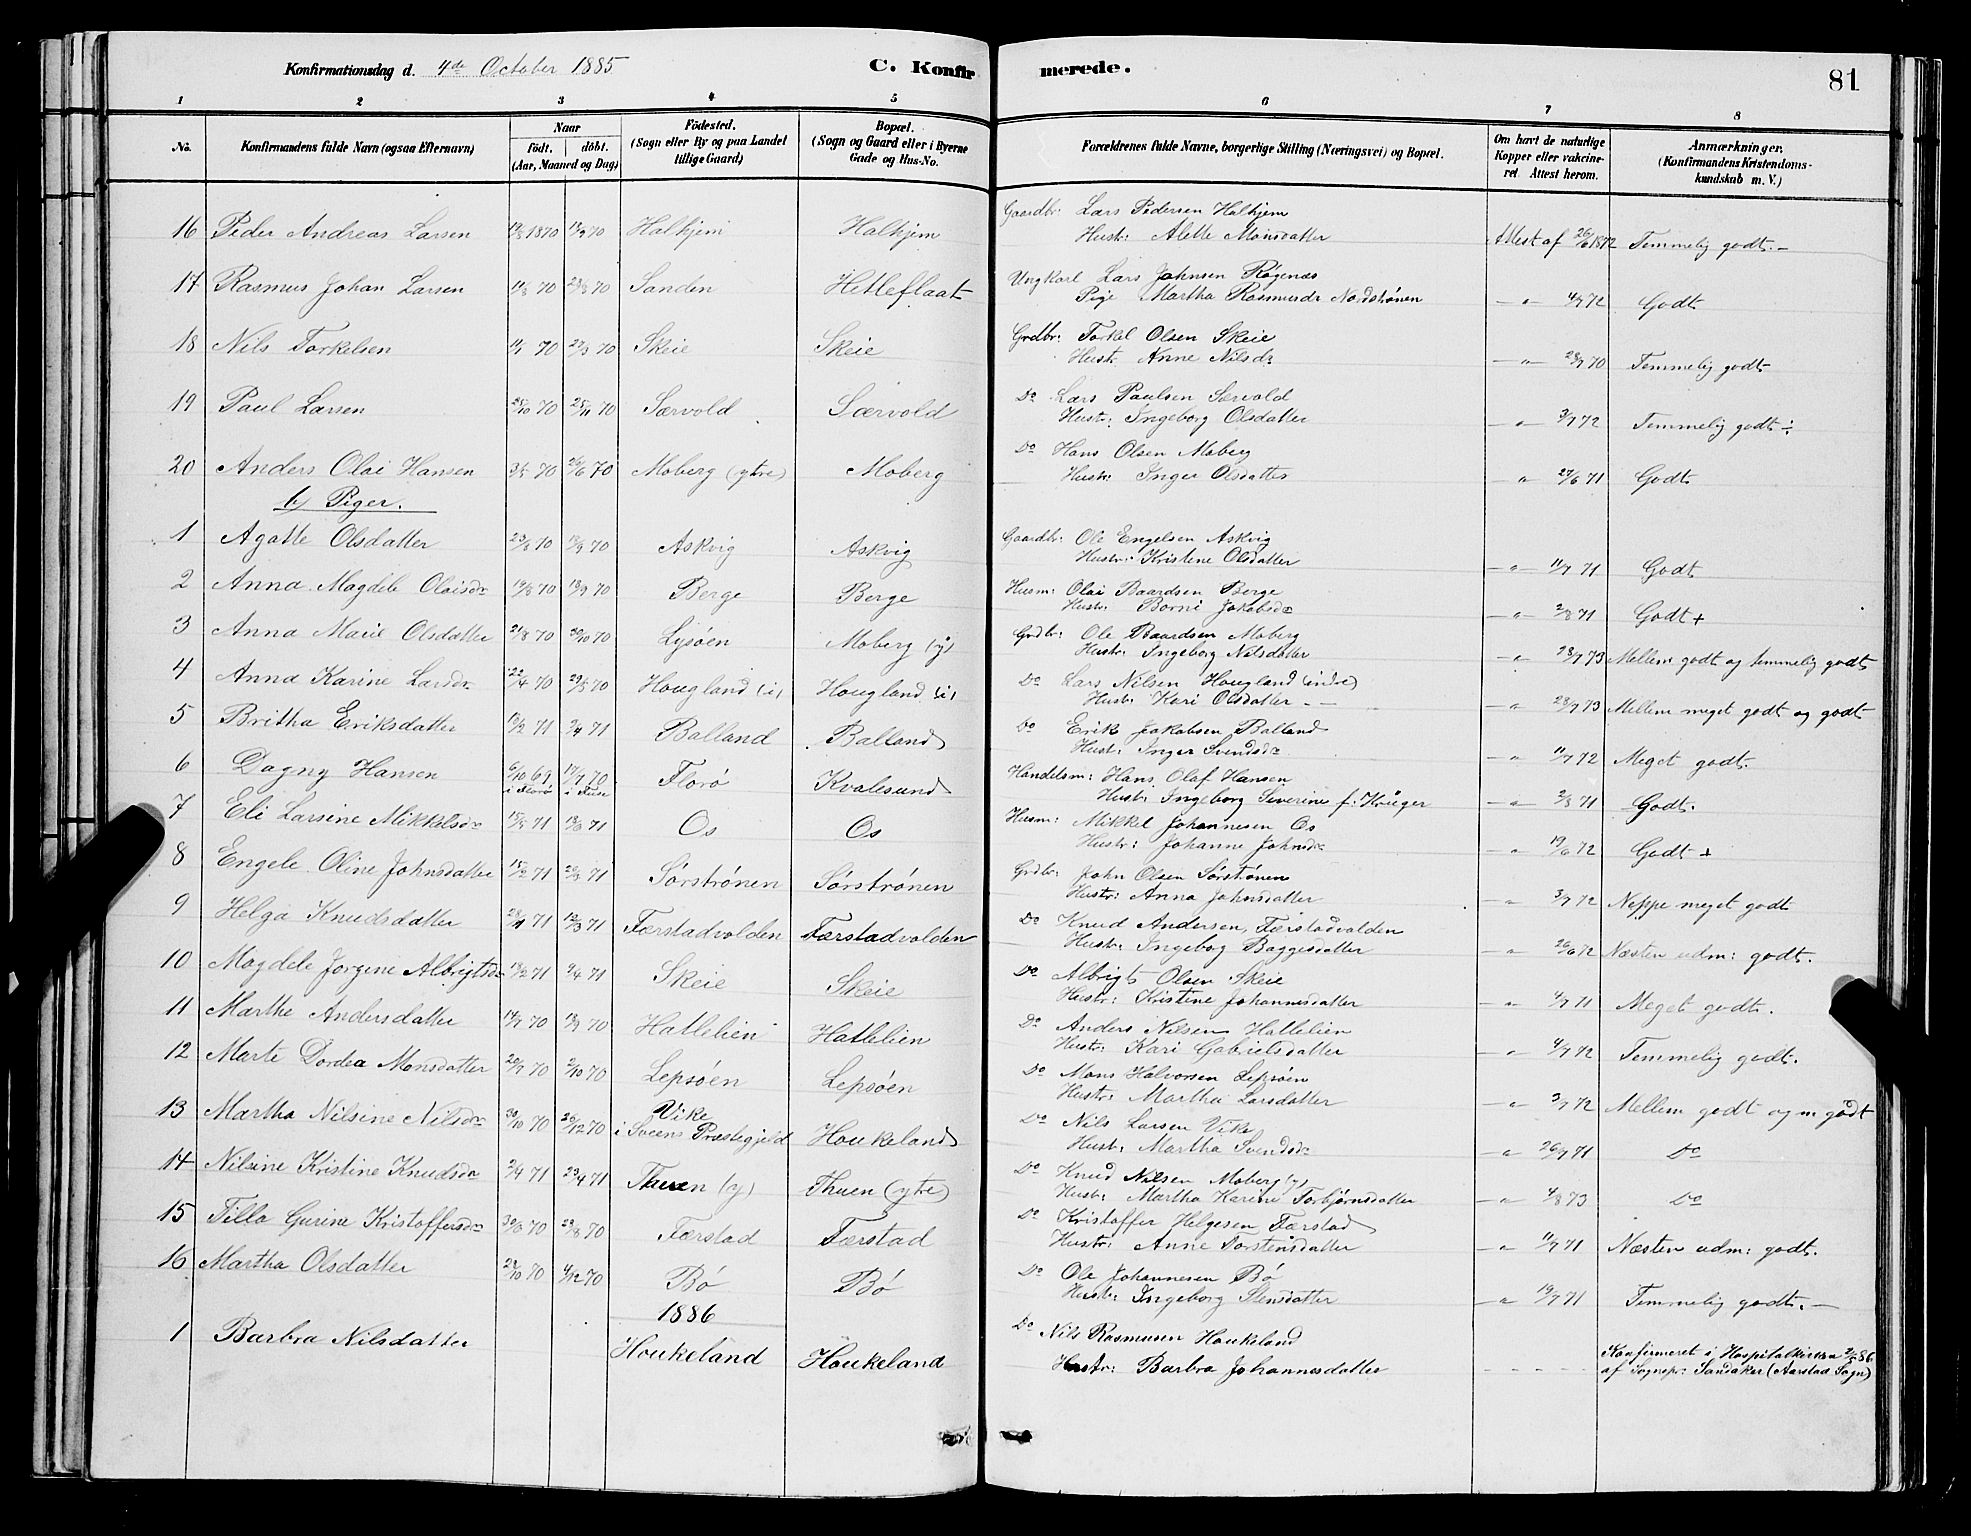 Konfirmationsdag d. 4de October 1885 C. Konfirmerede. 81
1 2 3 4 5 6 7 8
No. Konfirmandens fulde Navn (ogsaa Efternavn) Naar födt. döbt. (Aar, Maaned og Dag) Födested. (Sogn eller By og paa Landet tillige Gaard) Bopæl. (Sogn og Gaard eller i Byerne Gade og Hus-No. Forældrenes fulde Navne, borgerlige Stilling (Næringsvei) og Bopæl. Om havt de naturlige Kopper eller vakcineret Attest herom. Anmærkninger. (Konfirmandens Kristendomskundskab m. V.)
16 Peder Andreas Larsen 1870 70 Halhjem Halhjem Gaardbr: Lars Pedersen Halhjem
Hust: Alette Monsdatter Attest af 26/6 1872 Temmelig godt. –
17 Rasmus Johan Larsen 70 70 Sanden Hetleflaat Ungkarl Lars Johnsen Røgenæs
Pige Martha Rasmusdr Nordstrønen – " – 4/7 72 Godt
18 Nils Torkelsen 70 70 Skeie Skeie Grdbr: Torkel Olsen Skeie
Hust: Anne Nilsdr – " – 28/7 70 Temmelig godt
19 Paul Larsen 25/10 70 25/11 70 Særvold Særvold Do Lars Paulsen Særvold
Hust: Ingeborg Olsdatter – " – 3/7 72 Temmelig godt ÷
20 Anders Olai Hansen 70 70 Moberg (ytre) Moberg Do Hans Olsen Moberg
Hust: Inger Olsdatter " 27/6 71 Godt
b) Piger.
1 Agatte Olsdatter 23/8 70 18/9 70 Askvig Askvig Gaardbr: Ole Engelsen Askvig
Hustr: Kristene Olsdatter – " – 11/7 71 Godt
2 Anna Magdele Olaisdr 19/8 70 18/9 70 Berge Berge Husm: Olai Baardsen Berge
Hustr: Borni Jakobsdr – " – 2/8 71 Godt +
3 Anna Marie Olsdatter 21/8 70 30/10 70 Lysøen Moberg (y) Grdbr: Ole Baardsen Moberg
Hust: Ingeborg Nilsdatter – " – 28/7 73 Mellem godt og temmelig godt
4 Anna Karine Larsdr 22/4 70 29/5 70 Hougland (i) Hougland (i) Do Lars Nilsen Hougland (indre)
Hust: Kari Olsdatter – – – " – 28/7 73 Mellem meget godt og godt
5 Britha Eriksdatter 71 71 Balland Balland Do Erik Jakobsen Balland
Hust: Inger Svendsdr – " – 11/7 72 Meget godt.
6 Dagny Hansen 6/10 69 i Florø 17/7 70 i Fuse Florø Kvalesund Handelsm: Hans Olaf Hansen
Hust: Ingeborg Severine f. Krüger – " – 2/8 71 Godt.
7 Eli Larsine Mikkelsdr 71 71 Os Os Husm: Mikkel Johannesen Os
Hustr: Johanne Johnsdr – " – 19/6 72 Godt +
8 Engele Oline Johnsdatter 15/2 71 71 Sørstrønen Sørstrønen Grdbr: John Olsen Sørstrønen
Hustr: Anna Johnsdatter – " – 3/7 72 Neppe meget godt
9 Helga Knudsdatter 71 12/3 71 Færstadvolden Færstadvolden Do Knud Andersen Færstadvolden
Hustr: Ingebog Baggesdatter – " – 26/6 72 Næsten udm: godt.
10 Magdele Jorgine Albrigtsdr 71 71 Skeie Skeie Do Albrigt Olsen Skeie
Hustr: Kristine Johannesdatter – " – 4/7 71 Meget godt.
11 Marthe Andersdatter 70 18/9 70 Hatlelien Hatlelien Do Anders Nilsen Hatlelien
Hustr: Kari Gabrielsdatter – " – 4/7 72 Temmelig godt.
12 Marte Dordea Monsdatter 20/7 70 2/10 70 Lepsøen Lepsøen Do Mons Halvorsen Lepsøen
Hustr: Martha Larsdatter – " – 3/7 72 Mellem godt og m godt
13 Martha Nilsine Nilsdr 30/10 70 26/12 70 Vike i Sveens Præstegjeld Houkeland Do Nils Larsen Vike
Hust: Martha Svendsdr – " 26/7 71 Do
14 Nilsine Kristine Knudsdr 2/4 71 23/4 71 Thuen (y) Thuen (ytre) Do Knud Nilsen Moberg (y)
Hust: Martha Karine Torbjørnsdatter – " 4/8 73 Do
15 Tilla Gurine Kristoffersdr 70 70 Færstad Færstad Do Kristoffer Helgesen Færstad
Hustr: Anne Torstensdatter – " – 11/7 71 Næsten udm: godt.
16 Martha Olsdatter 70 4/12 70 Bø Bø Do Ole Johannesen Bø
Hustr: Ingeborg Stensdatter – " – 19/7 71 Temmelig godt. –
1886
1 Barbra Nilsdatter Houkeland Houkeland Do Nils Rasmusen Houkeland
Hustr: Barbra Johannesdatter – – – – Konfirmeret i Hospitalkirken 86
af Sognepr: Sandaker (Aarstad Sogn)